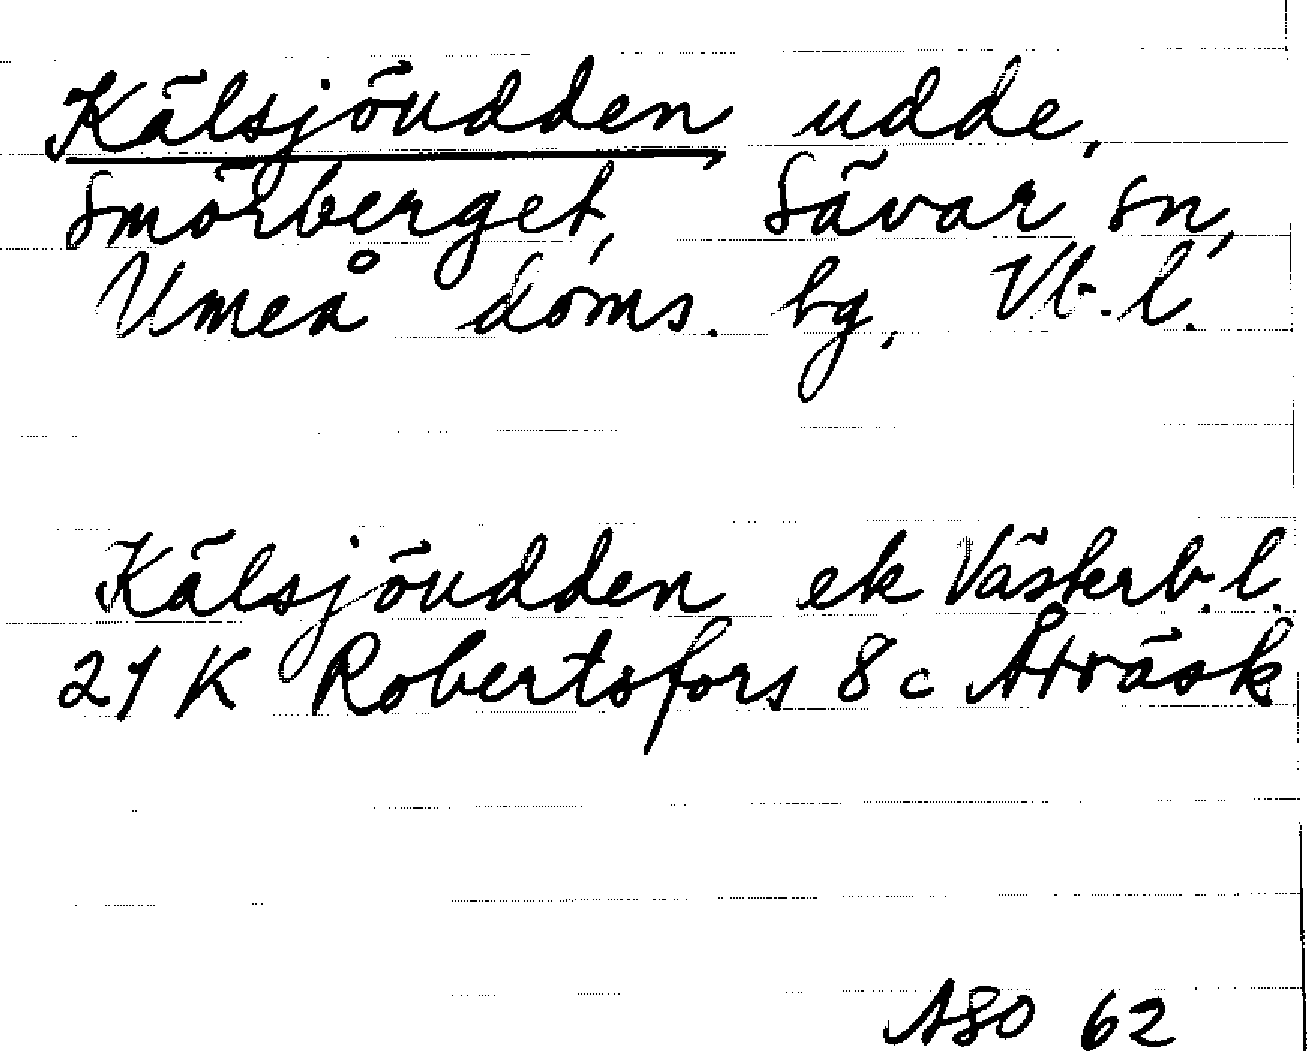 Kälsjöudden, udde,
Smörberget, Sävar sn,
Umeå doms. bg, Vb. l.
Kälsjöudden ek Västerb. l.
21 K Robertsfors 8 c Åträsk
ASO 62